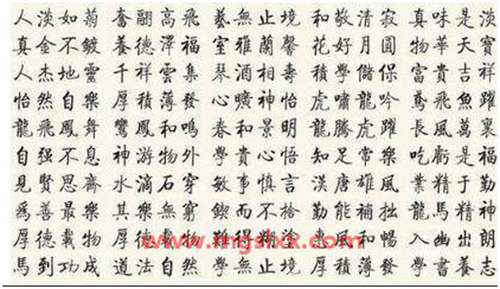 人淡如菊 奮翮高飛 藝無止境 和敬清寂 真味是淡
真金不鍍 養德澤福 室雅蘭馨 花好月圓 物華天寶
人杰地靈 千祥雲集 琴酒相壽 積學儲 富貴吉祥
怡然自樂 厚積薄發 心曠神怡 虎嘯龍吟 鳶飛魚躍
龍飛鳳舞 鸞鳳和鳴 春和景明 龍騰虎躍 長風萬裏
自强不息 神游物外 貴心悟 知足常樂 吃虧是福
見賢思齊 水滴石穿 敏事慎言 漢唐雄風 業精于勤
爲善最樂 其樂無窮 鍥而不捨 勤能補拙 龍馬精神
厚德載物 厚德載物 難得糊塗 風和暢 入幽出朗
馬到功成 道法自然 學無止境 厚積薄發 學書養志